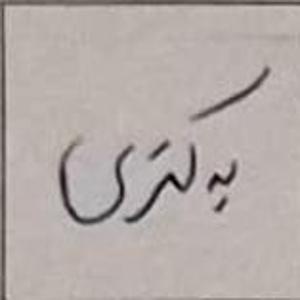 یەکتری